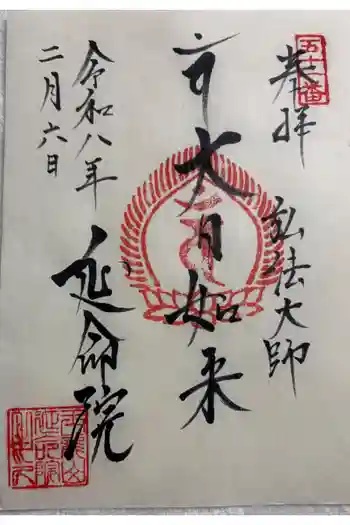 五十二番
奉拝
弘法大師
大日如来
令和八年
二月六日
延命院